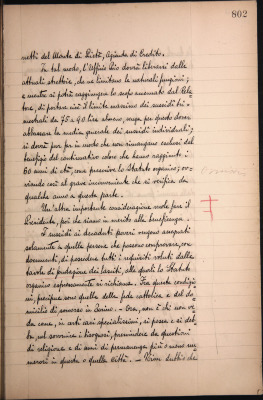 802
netti del Monte di Pietà, Azienda di Credito.
In tal modo, l'Ufficio Pio dovrà liberarsi dalle
attuali strettoie, che ne limitano le naturali funzioni;
e mentre si potrà raggiungere lo scopo accennato dal Rela
tore, di portare cioè il limite massimo dei sussidi tri=
mestrali da 75 a 90 lire almeno, senza per questo dover
abbassare la media generale dei sussidi individuali;
si dovrà pure far in modo che non rimangano esclusi dal
beneficio del continuativo coloro che hanno raggiunto i
60 anni di età, come prescrive lo Statuto organico;
viando così al grave inconveniente che si verifica da
qualche anno a questa parte.
Un'altra importante considerazione vuole fare il
Presidente, poi che siamo in merito alla beneficenza.
I sussidi ai decaduti poveri vengono assegnati
solamente a quelle persone che possono comprovare, con
documenti, di possedere tutti i requisiti voluti dalle
tavole di fondazione dei lasciti, alle quali lo Statuto
organico espressamente si richiama. Fra queste condizio
ni, precipue sono quelle della fede cattolica e del do
micilio di povero in Torino. - Ora, non è chi non ve
da come, in casi specialissimi, si possa e si deb
ba, nel sovvenire i bisognosi, prescindere da questioni
di religione e di anni di permanenza più o meno nu
merosi in questa o quella città. - Niun dubbio che